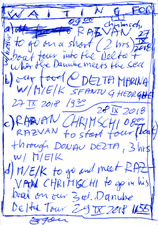 WAITING FOR
a) 09:00 chrimschi
RAZVAN 27
to go on a short (2 hrs)
boat tour into the Delta
why the Danube meets the sea
b) our food @ DELTA MARINA
W/M/E/K SFANTU GHEORGHE
27 IX 2018 1930
28 IX 2018
c) RAZVAN CHRIMSCHI
RAZVAN to start tour (boat)
through DONAU DELTA, 3 hrs
W/M/E/K
d) M/E/K to go and meet RAZ-
VAN CHRIMSCHI to go in his
boat on our 3rd. Danube
Delta Tour 29 IX 2018